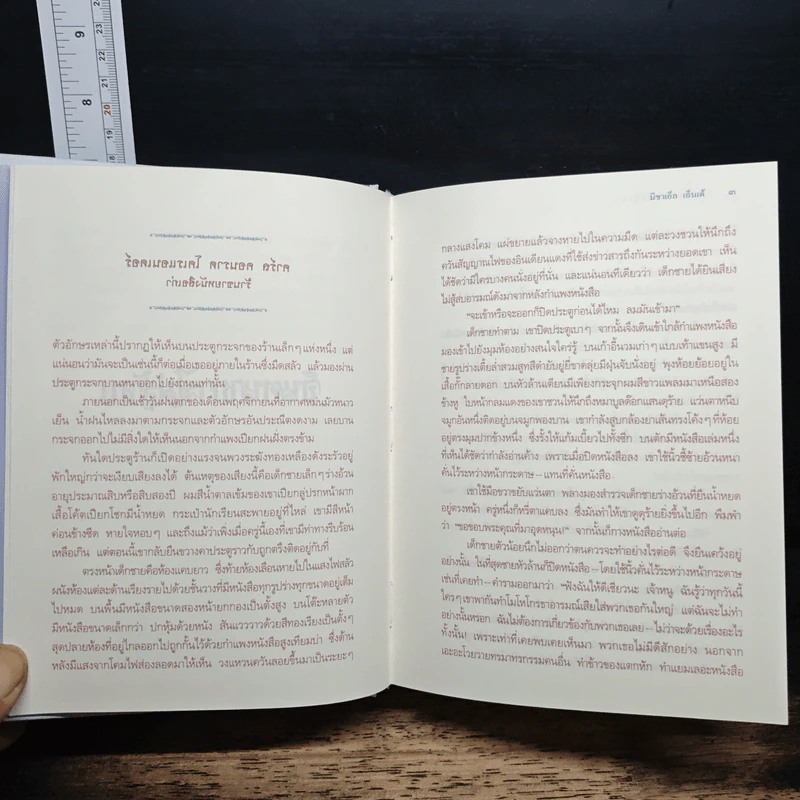 คาร์ล คอนราด โคเรแอนเดอร์
ร้านขายหนังสือเก่า
ตัวอักษรเหล่านี้ปรากฏให้เห็นบนประตูกระจกของร้านเล็กๆ แห่งหนึ่ง แต่
แน่นอนว่ามันจะเป็นเช่นนี้ก็ต่อเมื่อเธออยู่ภายในร้านซึ่งมืดสลัว แล้วมองผ่าน
ประตูกระจกบานหนาออกไปยังถนนเท่านั้น
ภายนอกเป็นเช้าวันฝนตกของเดือนพฤศจิกายนที่อากาศหม่นมัวหนาว
เย็น น้ำฝนไหลลงมาตามกระจกและตัวอักษรอันประณีตงดงาม เลยบาน
กระจกออกไปไม่มีสิ่งใดให้เห็นนอกจากกำแพงเปียกฝนฝั่งตรงข้าม
ทันใดประตูร้านก็เปิดอย่างแรงจนพวงระฆังทองเหลืองดังรัวอยู่
พักใหญ่กว่าจะเงียบเสียงลงได้ ต้นเหตุของเสียงนี้คือเด็กชายเล็กๆ ร่างอ้วน
อายุประมาณสิบหรือสิบสองปี ผมสีน้ำตาลเข้มของเขาเปียกลู่ปรกหน้าผาก
เสื้อโค้ตเปียกโชกมีน้ำหยด กระเป๋านักเรียนสะพายอยู่ที่ไหล่ เขามีสีหน้า
ค่อนข้างซีด หายใจหอบๆ และถึงแม้ว่าเพิ่งเมื่อครู่นี้เองที่เขามีท่าทางรีบร้อน
เหลือเกิน แต่ตอนนี้เขากลับยืนขวางคาประตูราวกับถูกตรึงติดอยู่กับที่
ตรงหน้าเด็กชายคือห้องแคบยาว ซึ่งท้ายห้องเลือนหายไปในแสงไฟสลัว
ผนังห้องแต่ละด้านเรียงรายไปด้วยชั้นวางที่มีหนังสือทุกรูปร่างทุกขนาดอยู่เต็ม
ไปหมด บนพื้นมีหนังสือขนาดสองหน้ายกกองเป็นตั้งสูง บนโต๊ะหลายตัว
มีหนังสือขนาดเล็กกว่า ปกหุ้มด้วยหนัง สันแวววาวด้วยสีทองเรียงเป็นตั้งๆ
สุดปลายห้องที่อยู่ไกลออกไปถูกกั้นไว้ด้วยกำแพงหนังสือสูงเทียมบ่า ซึ่งด้าน
หลังมีแสงจากโคมไฟส่องลอดมาให้เห็น วงแหวนควันลอยขึ้นมาเป็นระยะๆ
มิชาเอ็ล เอ็นเด้ ๓
กลางแสงโคม แผ่ขยายแล้วจางหายไปในความมืด แต่ละวงชวนให้นึกถึง
ควันสัญญาณไฟของอินเดียนแดงที่ใช้ส่งข่าวสารถึงกันระหว่างยอดเขา เห็น
ได้ชัดว่ามีใครบางคนนั่งอยู่ที่นั่น และแน่นอนทีเดียวว่า เด็กชายได้ยินเสียง
ไม่สู้สบอารมณ์ดังมาจากหลังกำแพงหนังสือ
“จะเข้าหรือจะออกก็ปิดประตูก่อนได้ไหม ลมมันเข้ามา”
เด็กชายทำตาม เขาปิดประตูเบาๆ จากนั้นจึงเดินเข้าใกล้กำแพงหนังสือ
มองเข้าไปยังมุมห้องอย่างสนใจใคร่รู้ บนเก้าอี้นวมเก่าๆ แบบเท้าแขนสูง มี
ชายรูปร่างเตี้ยล่ำสวมสูทสีดำยับยู่ยี่ขาดลุ่ยมีฝุ่นจับนั่งอยู่ พุงห้อยย้อยอยู่ใน
เสื้อกั๊กลายดอก บนหัวล้านเตียนมีเพียงกระจุกผมสีขาวแพลมมาเหนือสอง
ข้างหู ใบหน้ากลมแดงของเขาชวนให้นึกถึงหมาบูลด๊อกแสนดุร้าย แว่นตาหนีบ
จมูกอันหนึ่งติดอยู่บนจมูกพองบาน เขากำลังสูบกล้องยาเส้นทรงโค้งๆ ที่ห้อย
อยู่ตรงมุมปากข้างหนึ่ง ซึ่งรั้งให้แก้มเบี้ยวไปทั้งซีก บนตักมีหนังสือเล่มหนึ่ง
ที่เห็นได้ชัดว่ากำลังอ่านค้าง เพราะเมื่อปิดหนังสือลง เขาใช้นิ้วชี้ซ้ายอ้วนหนา
คั่นไว้ระหว่างหน้ากระดาษ—แทนที่คั่นหนังสือ
เขาใช้มือขวาขยับแว่นตา พลางมองสำรวจเด็กชายร่างอ้วนที่ยืนน้ำหยด
อยู่ตรงหน้า ครู่หนึ่งก็หรี่ตาแคบลง ซึ่งมันทำให้เขาดูดุร้ายยิ่งขึ้นไปอีก พึมพำ
ว่า “ขอขอบพระคุณที่มาอุดหนุน!” จากนั้นก็กางหนังสืออ่านต่อ
เด็กชายตัวน้อยนึกไม่ออกว่าตนควรจะทำอย่างไรต่อดี จึงยืนเคว้งอยู่
อย่างนั้น ในที่สุดชายหัวล้านก็ปิดหนังสือ—โดยใช้นิ้วคั่นไว้ระหว่างหน้ากระดาษ
เช่นที่เคยทำ—คำรามออกมาว่า “ฟังฉันให้ดีเชียวนะ เจ้าหนู ฉันรู้ว่าทุกวันนี้
ใครๆ เขาพากันทำโมโหโกรธาอารมณ์เสียใส่พวกเธอกันใหญ่ แต่ฉันจะไม่ทำ
อย่างนั้นหรอก ฉันไม่ต้องการเกี่ยวข้องกับพวกเธอเลย—ไม่ว่าจะด้วยเรื่องอะไร
ทั้งนั้น! เพราะเท่าที่เคยพบเคยเห็นมา พวกเธอไม่มีดีสักอย่าง นอกจาก
เอะอะโวยวายทรมาทรกรรมคนอื่น ทำข้าวของแตกหัก ทำแยมเลอะหนังสือ